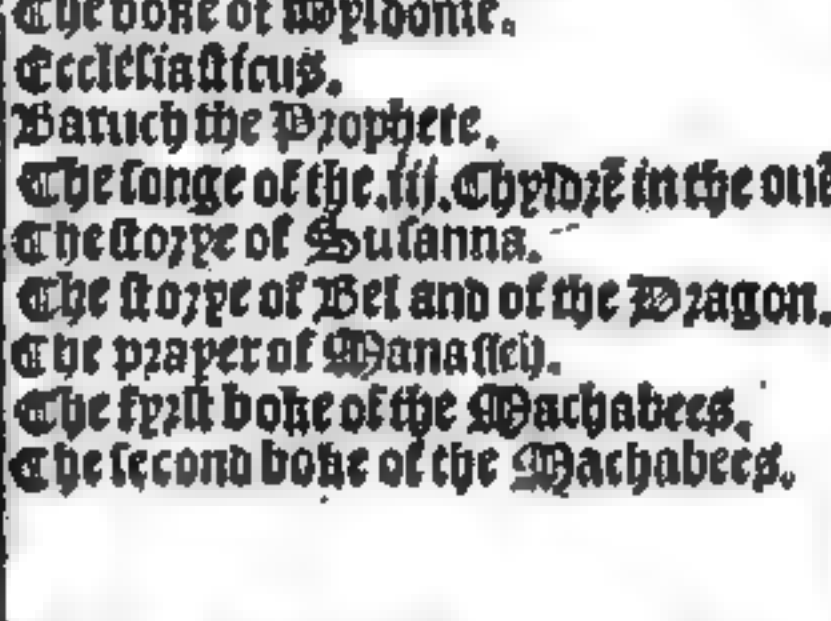 The boke of Wyſdome.
Eccleſiaſticus.
Baruch the Prophete.
The ſonge of the .iij. Chyldrē in the ouē
The ſtorye of Suſanna.
The ſtorye of Bel and of the Dragon.
The prayer of Manaſſeh.
The fyrſt boke of the Machabees.
The ſecond boke of the Machabees.